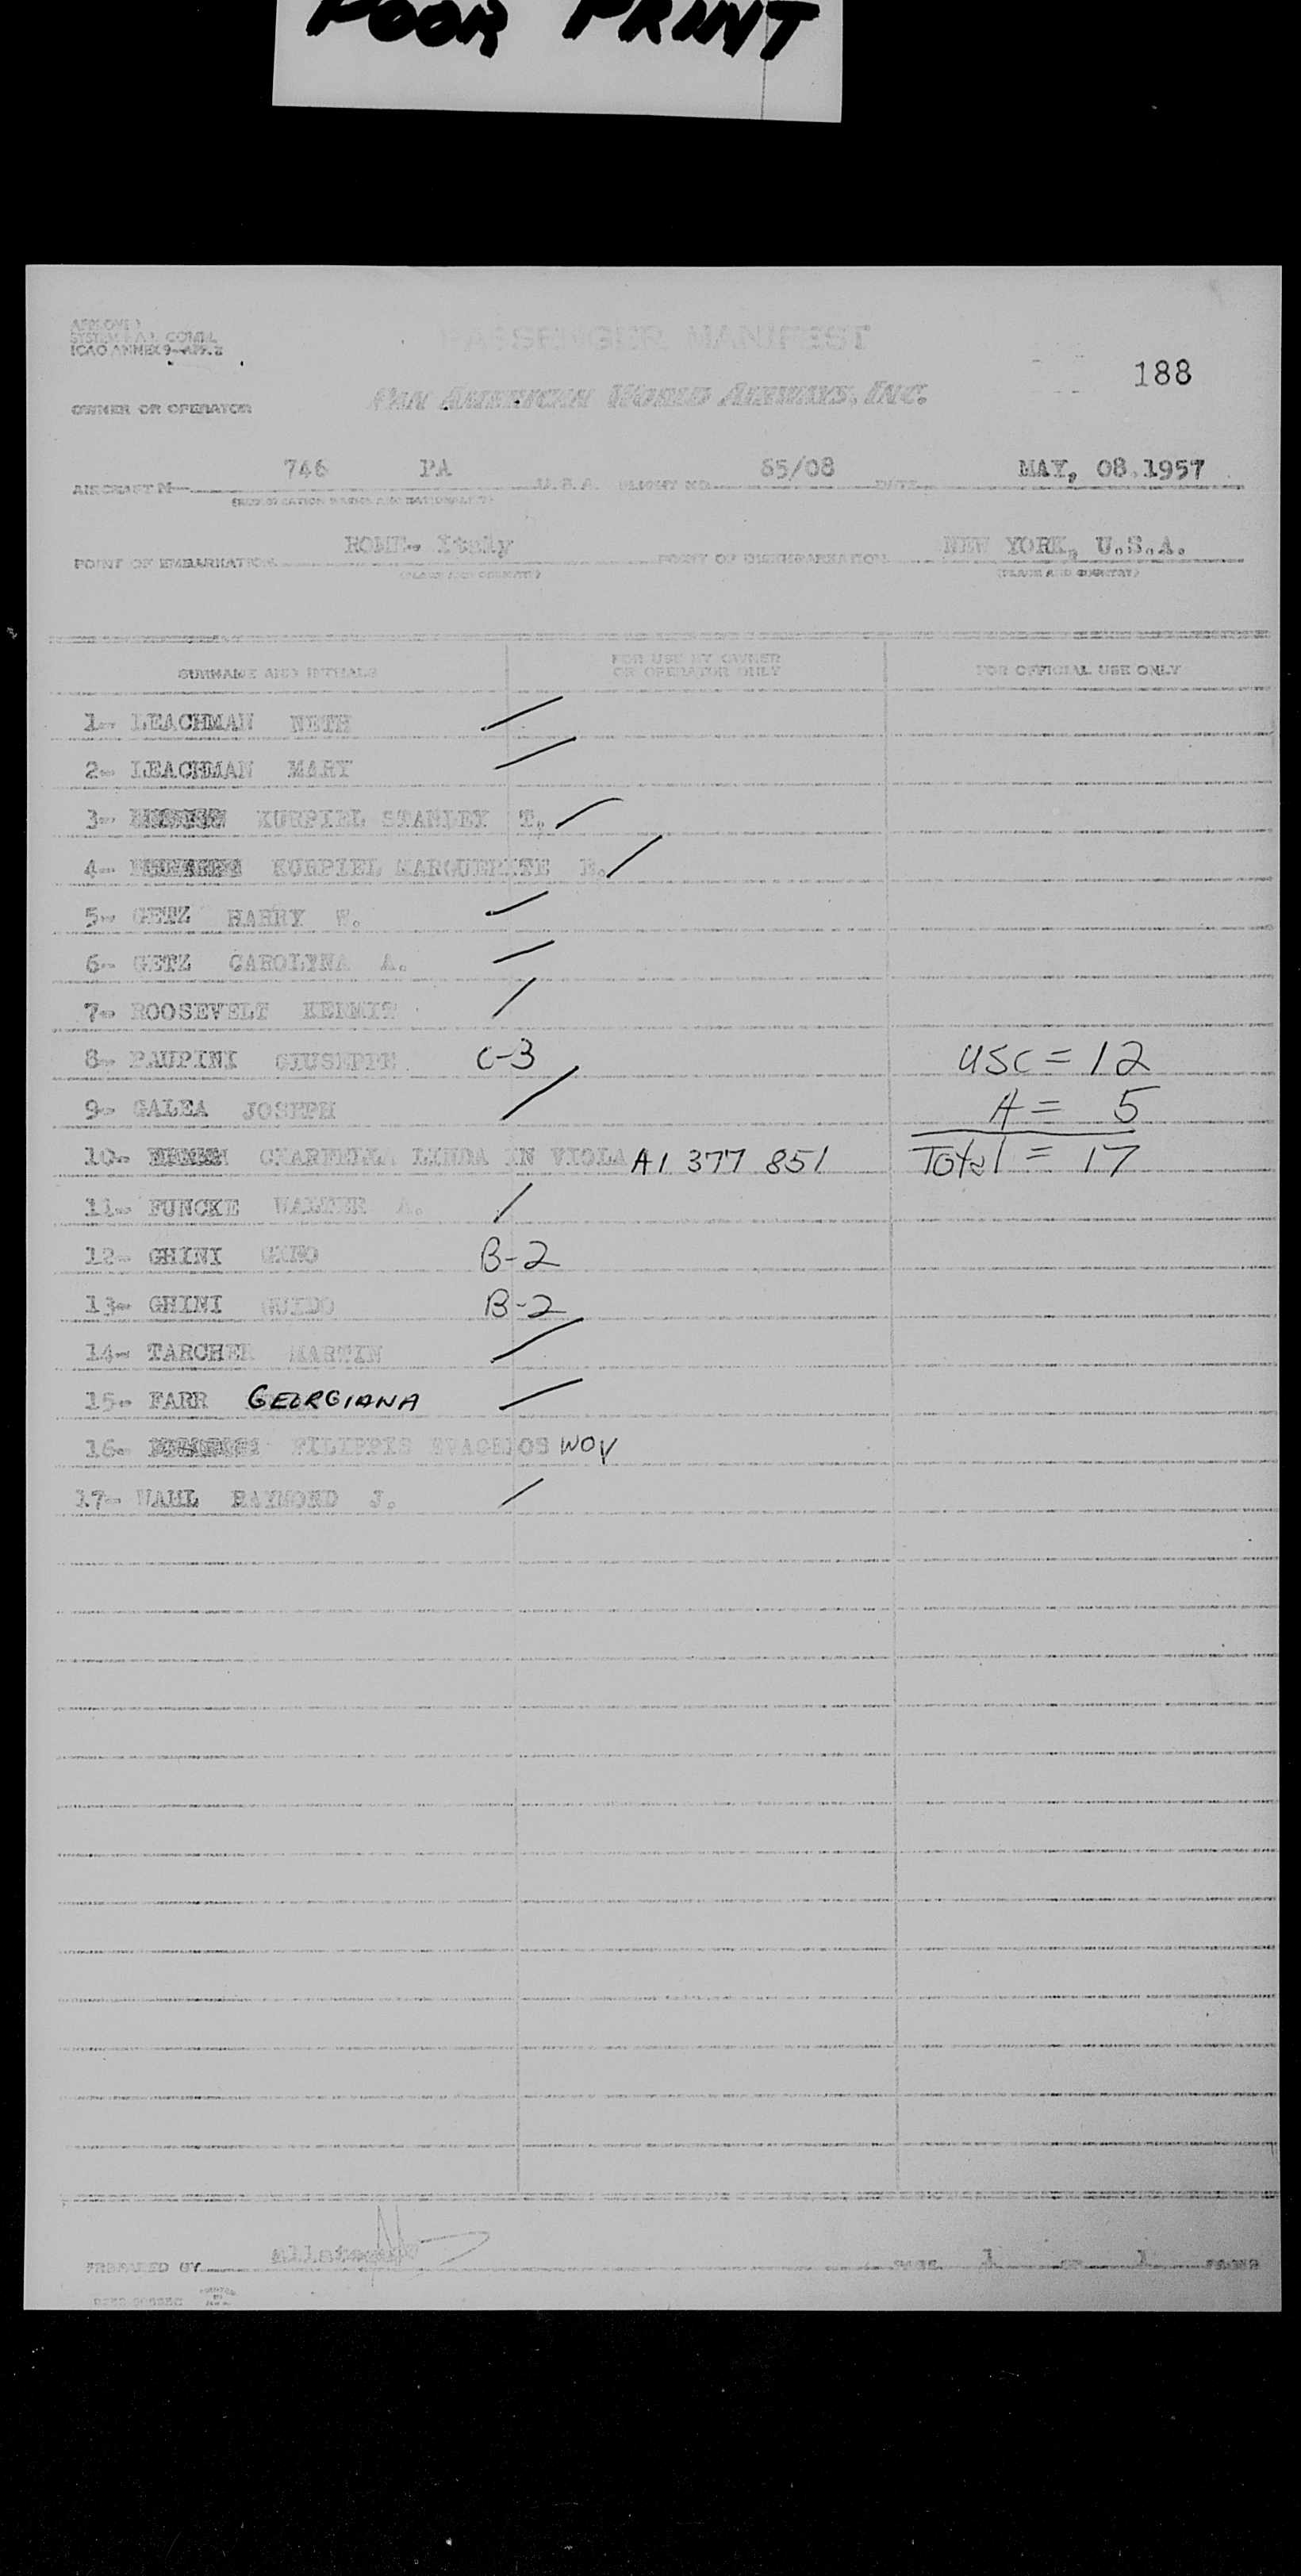 POOR PRINT
APPROVED
ICAO ANNEX 9-APP. 2
PASSENGER MANIFEST
188
PAN AMERICAN WORLD AIRWAYS, INC.
OWNER OR OPERATOR
AIRCRAFT N- 746 PA U.S.A. FLIGHT NO. 65/08 DATE MAY, 08.1957
POINT OF EMBARKATION ROME- Italy POINT OF DISEMBARKATION NEW YORK, U.S.A.
(PLACE AND COUNTRY) (PLACE AND COUNTRY)
SURNAME AND INITIALS FOR USE BY OWNER OR OPERATOR ONLY FOR OFFICIAL USE ONLY
1- LEACHMAN NETH
2- LEACHMAN MARY
3- KURPIEL STANLEY T.
4- KURPIEL MARGUERITE
5- GETZ HARRY W.
6- GETZ CAROLYNA A.
7- ROOSEVELT KERMIT
8- PAUPINI GIUSEPPE C-3 USC = 12
9- GALEA JOSEPH A = 5
10- LINDA IN VIOLA A1 377 851 Total = 17
11- FUNCKE WALTER A.
12- GHINI GINO B-2
13- GHINI GUIDO B-2
14- TARCHER MARTIN
15- FARR GEORGIANA
16- FILIPPIS WOV
17- WAHL RAYMOND J.
PREPARED BY PAGE 1 OF 1 PAGES